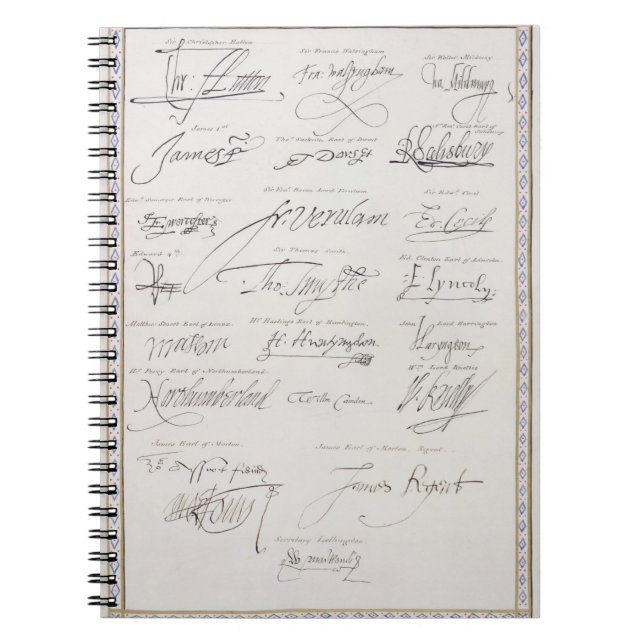 Sir Christopher Hatton
Sir Francis Walsingham
Sir Walter Mildmay
Chr: Hatton
Fra: Walsyngham
Wa. Mildmay
James 1st
Thos Sackville Earl of Dorset
Robt Cecil Earl of Salisbury
James
T Dorset
Salisbury
Edwd Somerset Earl of Worcester
Sir Frans Bacon Lord Verulam
Sir Edwd Cecil
E. Worcester
Fr. Verulam
Ed. Cecill
Edward 4th
Sir Thomas Smith
Ed. Clinton Earl of Lincoln
Tho. Smythe
E Lyncoln
Matthew Stuart Earl of Lennox
Hy Hastings Earl of Huntingdon
John Lord Harrington
H. Huntyngdon
Haryngton
Hy Percy Earl of Northumberland
Wm Lord Knollis
Northumberland
Willm Camden
W. Knollys
James Earl of Morton
James Earl of Morton, Regent
James Regent
Secretary Lethington